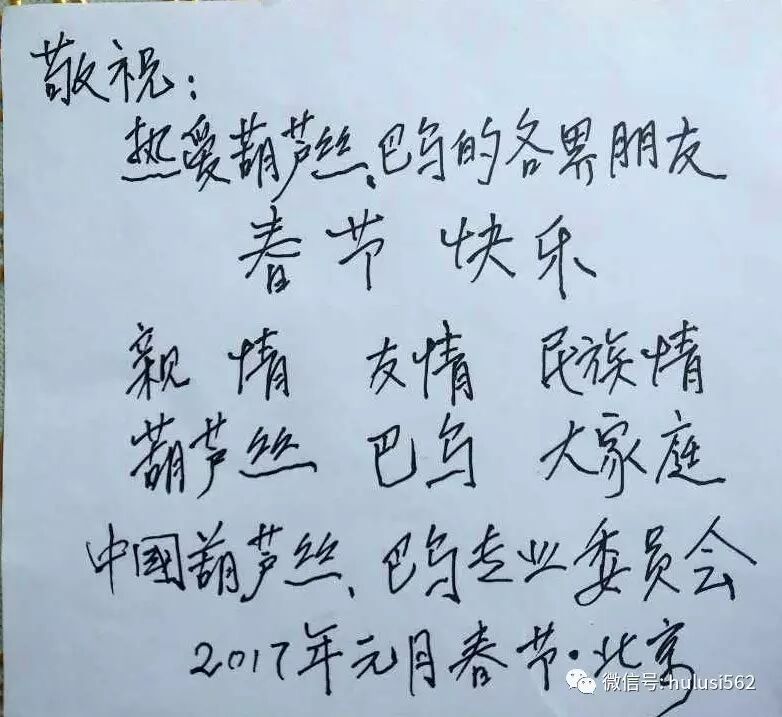 敬祝:
热爱葫芦丝、巴乌的各界朋友
春节快乐
親情 友情 民族情
葫芦丝 巴乌 大家庭
中國葫芦丝、巴乌专业委员会
2017年元月春节·北京
微信号: hulusi562